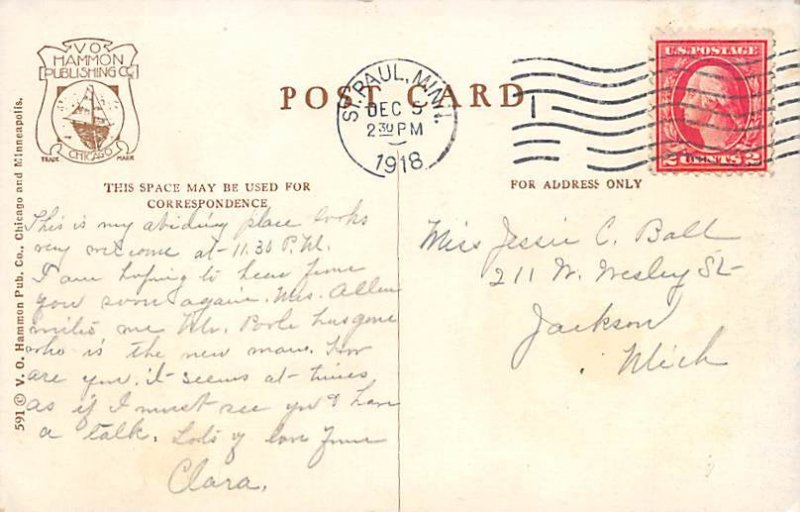 V O
HAMMON
PUBLISHING CO
TRADE MARK
CHICAGO
POST CARD
ST. PAUL, MINN.
DEC 5
2 30 PM
1918
U.S. POSTAGE
2 CENTS 2
THIS SPACE MAY BE USED FOR
CORRESPONDENCE
FOR ADDRESS ONLY
591 © V. O. Hammon Pub. Co., Chicago and Minneapolis.
This is my abiding place looks
very welcome at 11.30 P.M.
I am hoping to hear from
you soon again. Mrs. Allen
writes me Mr. Poole has gone
who is the new man. How
are you. it seems at times
as if I must see you & have
a talk. Lots of love from
Clara.
Miss Jessie C. Ball
211 W. Wesley St
Jackson
Mich